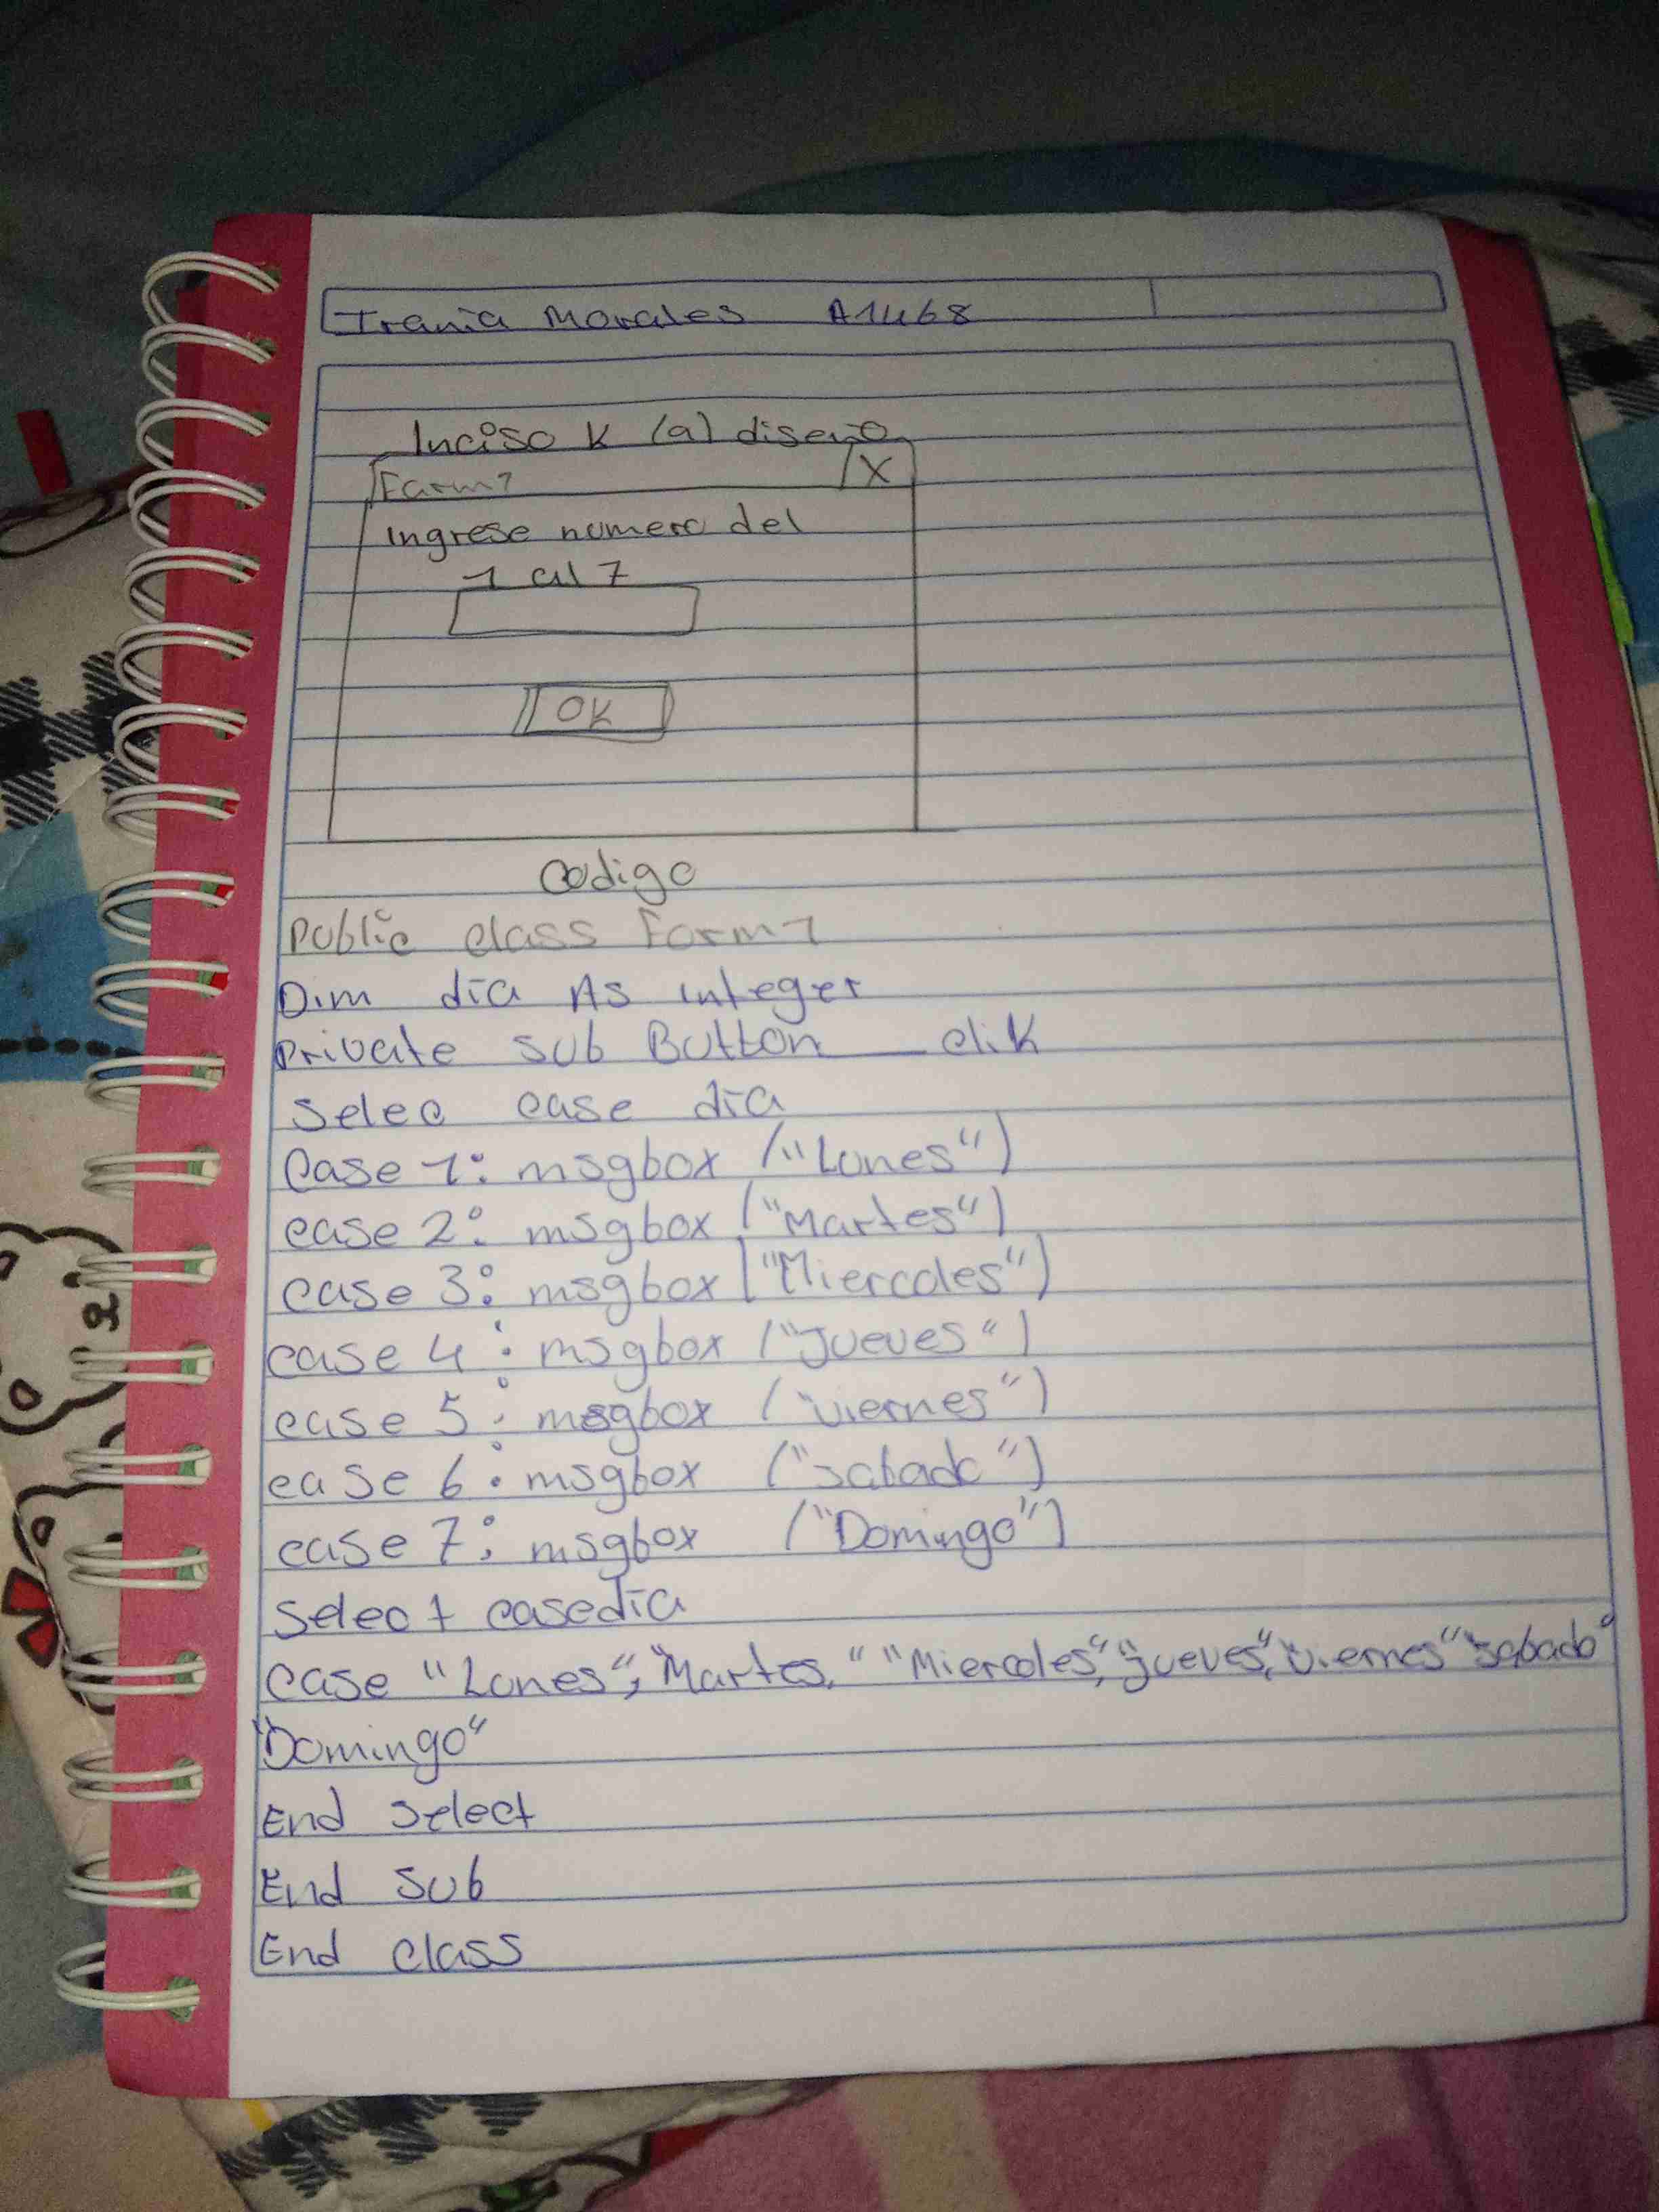 Irania Morales A1468
Inciso K (a) diseño
Form1 X
Ingrese numero del
1 al 7
OK
codigo
Public class Form1
Dim dia As integer
Private sub Button_clik
Selec case dia
Case 1: msgbox ("Lunes")
case 2: msgbox ("Martes")
case 3: msgbox ("Miercoles")
case 4: msgbox ("Jueves")
case 5: msgbox ("viernes")
case 6: msgbox ("sabado")
case 7: msgbox ("Domingo")
Select casedia
Case "Lunes", "Martes," "Miercoles", "jueves", "viernes" "sabado"
"Domingo"
End select
End sub
End class